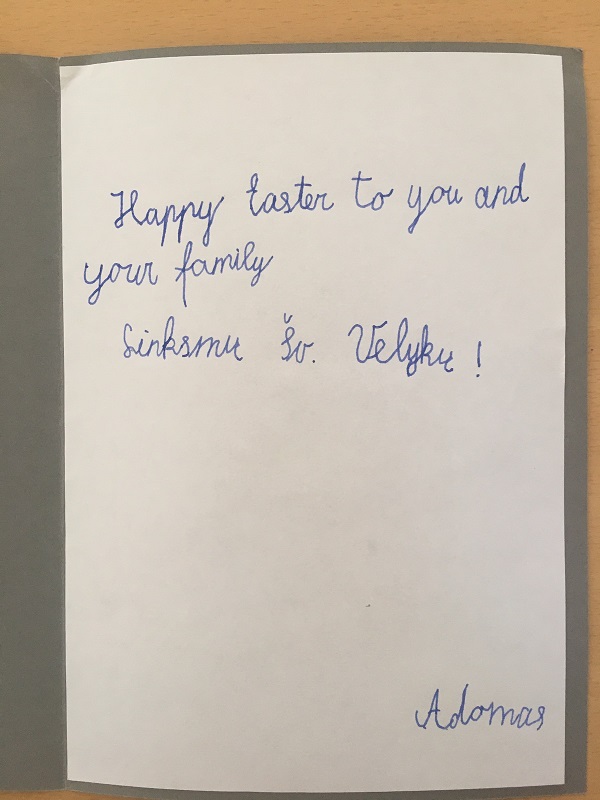 Happy Easter to you and
your family
Linksmų Šv. Velykų !
Adomas